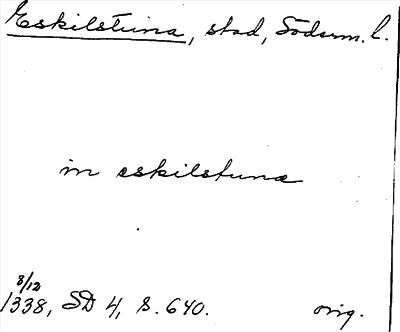 Eskilstuna, stad, Söderm. l.
in eskilstuna
8/12
1338, SD 4, s. 640. orig.